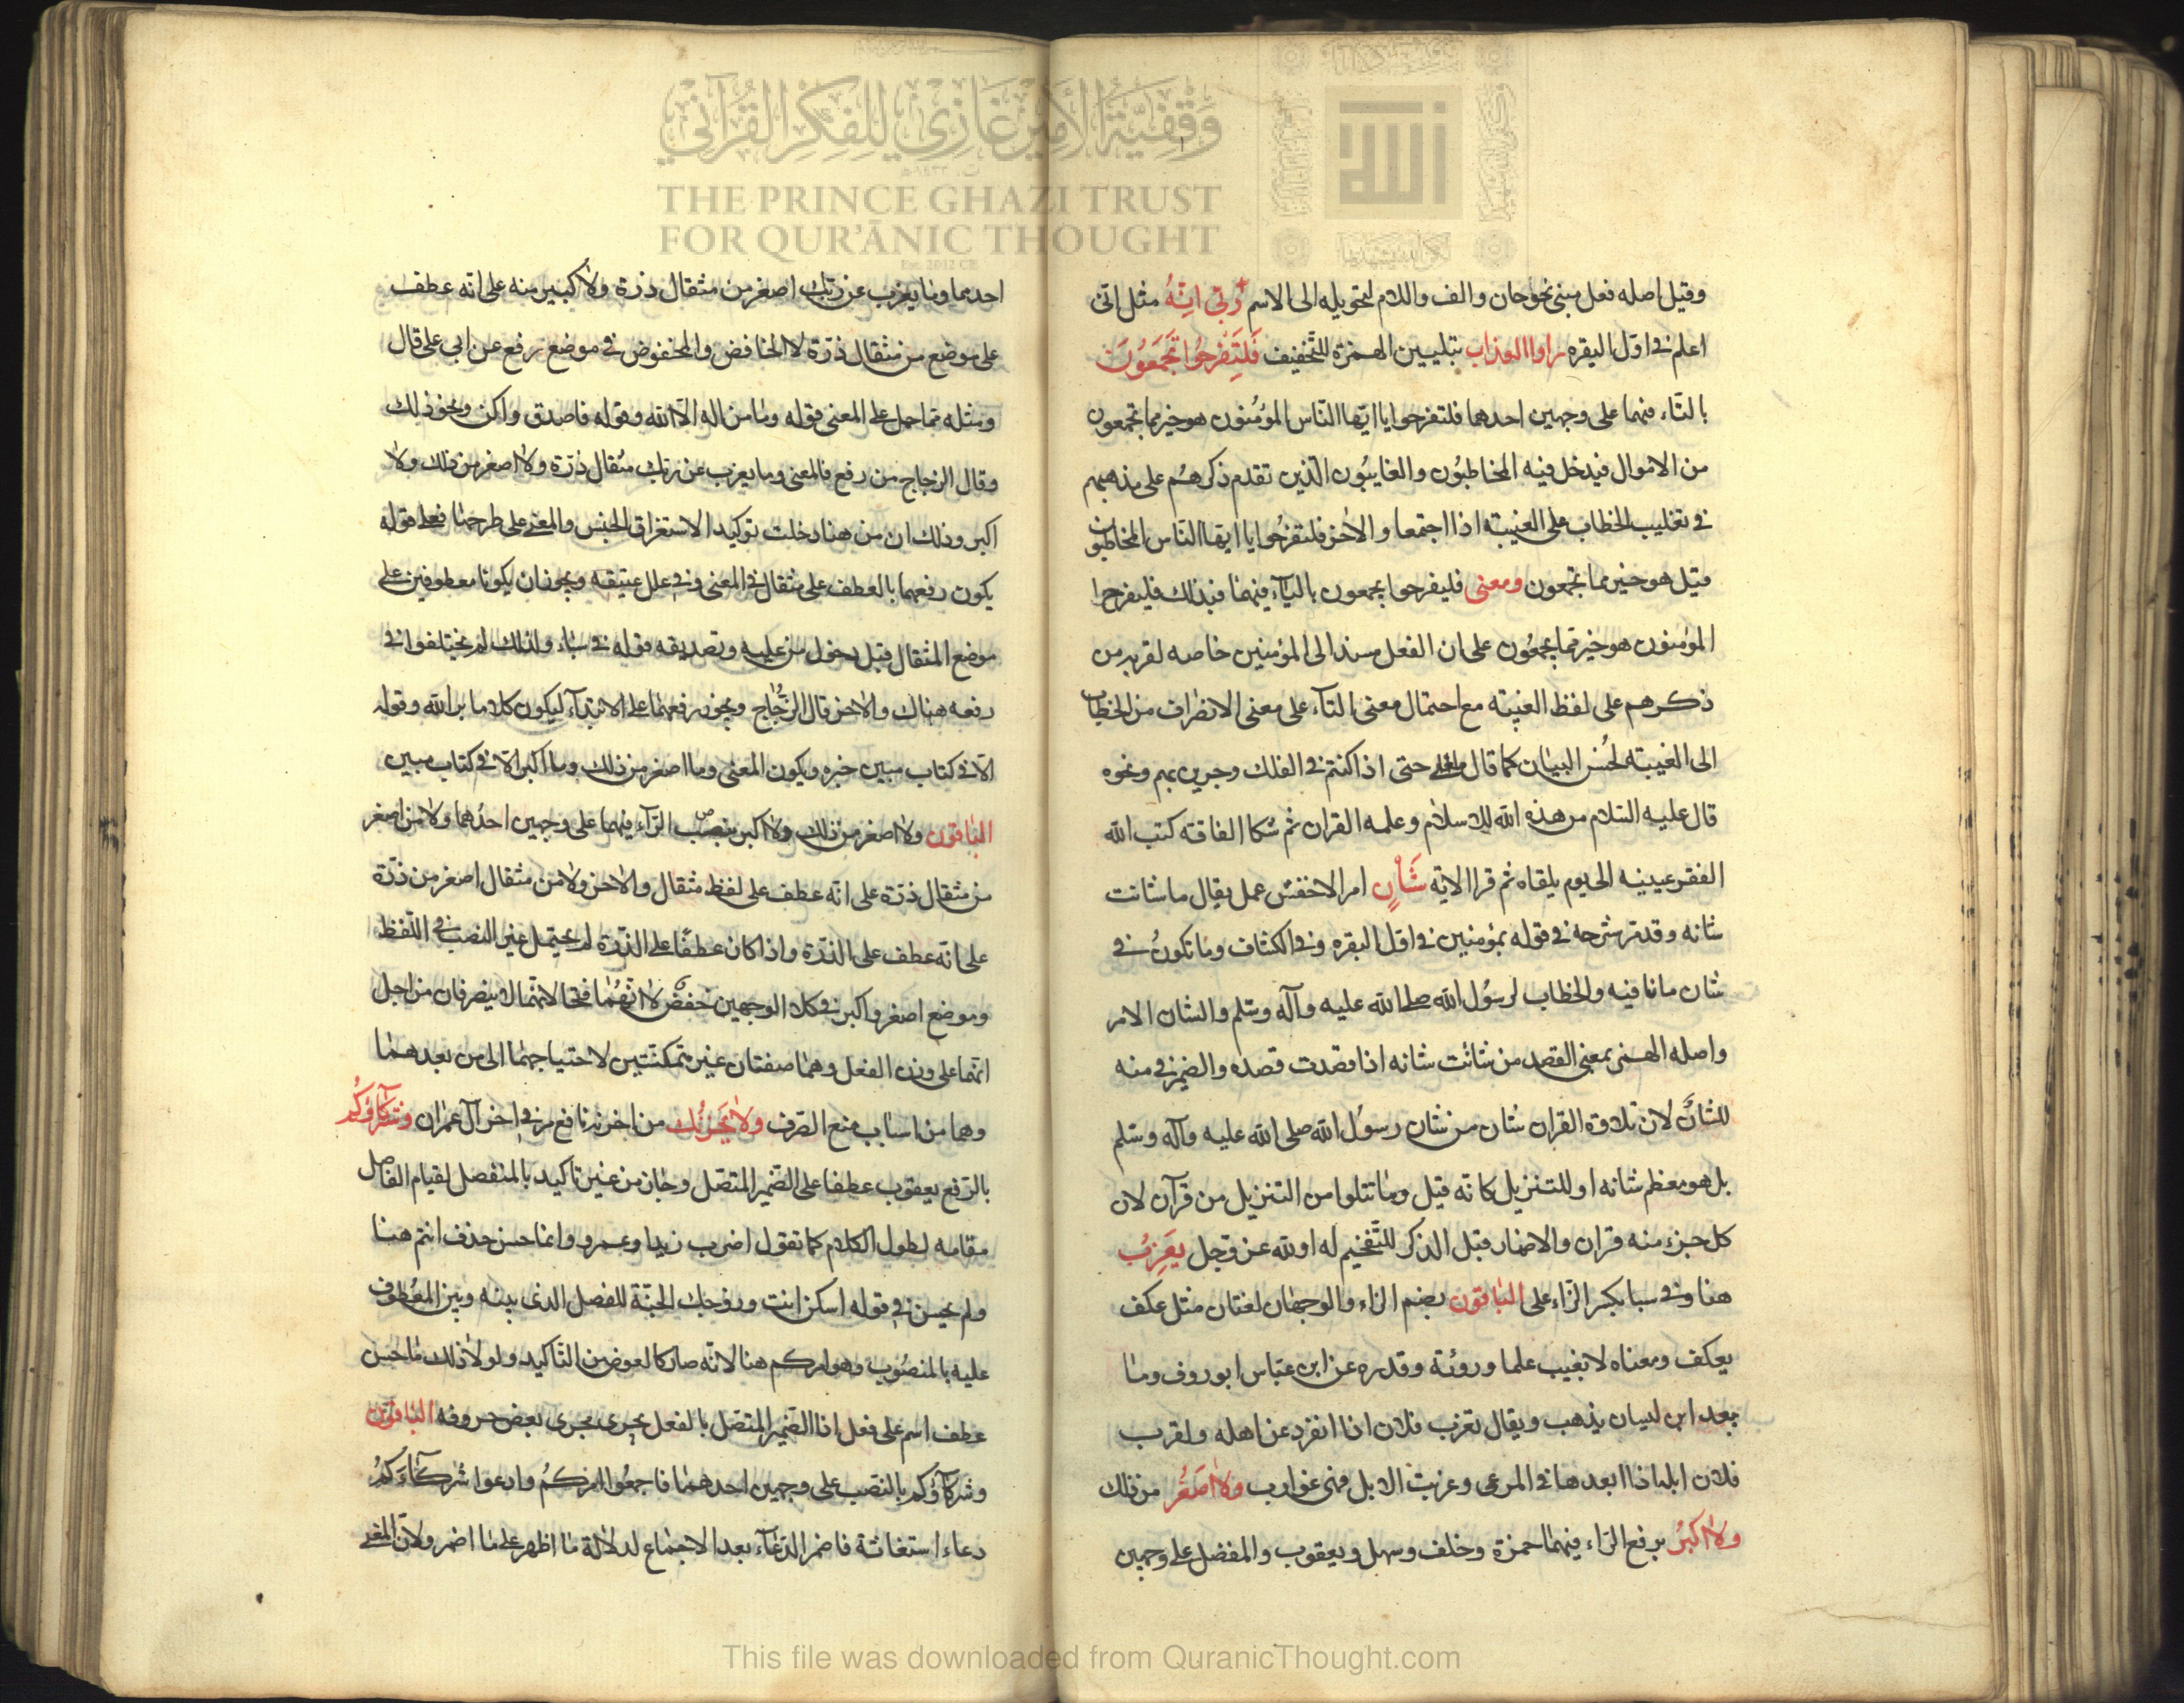 وقفية الأمير غازي للفكر القرآني
THE PRINCE GHAZI TRUST
FOR QUR'ĀNIC THOUGHT
وقيل اصله فعل مبنى نحو حان والف واللام لتحويله الى الاسم ربّى انّهُ مثل انى
اعلم في اوّل البقره راوا العذاب بتليين الهمزة للتّخفيف فَلتَفرحُوا تجمَعُونَ
بالتّاء فيهما على وجهين احدهما فلتفرحوا يا ايّها النّاس المؤمنون هو خير مما تجمعون
من الاموال فيدخل فيه المخاطبُون والغايبُون الّذين تقدم ذكرهم على مذهبهم
في تغليب الخطاب على الغيبة اذا اجتمعا والاخر فلتفرحُوا يا ايها النّاس المخاطبون
قيل هو خير مما تجمعون ومعنى فليفرحوا يجمعون بالياء فيهما فبذلك فليفرحوا
المؤمنون هو خير مما يجمعُون على ان الفعل مسند الى المؤمنين خاصه لقربه من
ذكرهم على لفظ الغيبة مع احتمال معنى التاء على معنى الانصراف من الخطاب
الى الغيبة لحُسن البيان كما قال حتى اذا كنتم في الفلك وجرين بهم ونحوه
قال عليه السّلام من هذه الله للاسلام وعلمه القران ثم شكا الفاقة كتب الله
الفقر عينيه الى يوم يلقاه ثم قرا الاية شَأنٍ امر الاخفش عمل يقال ما شانت
شانه وقد مر شرحه في قوله بمؤمنين في اوّل البقره وفي الكشاف وما تكونُ في
شان ما نافيه والخطاب لرسُول الله صلى الله عليه وآله وسّلم والشان الامر
واصله الهمز بمعنى القصد من شانت شانه اذا قصدت قصده والضمير في منه
للشان لان تلاوة القران شان من شان رسول الله صلى الله عليه وآله وسّلم
بل هو معظم شانه او للتنزيل كانه قيل وما تتلوا من التنزيل من قرآن لان
كل جزء منه قران والاضمار قبل الذكر للتّفخيم له او لله عز وجل يعزِبُ
هنا وفي سبا بكسر الزّاء على الباقون بضم الزاء والوجهان لغتان مثل عكف
يعكف ومعناه لا يغيب علما وروئة وقدره عن ابن عبّاس ابو روف وما
يبعد ابن لبيان يذهب ويقال تعزب فلان اذا انفرد عن اهله واقرب
فلان ابله اذا ابعدها في المرعى وعزبت الابل فهى عوازب ولا اصغَرُ من ذلك
ولا اكبرُ برفع الراء فيهما حمزة وخلف وسهل ويعقوب والمفضل على وجهين
احدهما وما يعزب عن ربك اصغر من مثقال ذرة ولا كبير منه على انه عطف
على موضع من مثقال ذرّة لا الخافض والمخفوض في موضع رفع عن ابي على قال
ومثله مما حمل على المعنى قوله وما من اله الّا الله وقوله فاصدق واكن ونحو ذلك
وقال الزجاج من رفع فالمعنى وما يعزب عن ربك مثقال ذرّة ولا اصغر من ذلك ولا
اكبر وذلك ان من هنا دخلت توكيدا لاستغراق الجنس والمعنى على طرحها فعلى قوله
يكون رفعهما بالعطف على مثقال في المعنى وفي علل عتيقه ويجوز ان يكونا معطوفين على
موضع المثقال قبل دخول من عليه وتصديقه قوله في سباء ولذلك لم يختلفوا في
رفعه هناك والاخر قال الزّجّاج ويجوز رفعهما على الابتداء ليكون كلاما براسه وقوله
الّا في كتاب مبين خبره ويكون المعنى وما اصغر من ذلك وما اكبر الّا في كتاب مبين
الباقون ولا اصغر من ذلك ولا اكبر بنصب الرّاء فيهما على وجهين احدُهما ولا من اصغر
من مثقال ذرّة على انّه عطف على لفظ مثقال والاخر ولا من مثقال اصغر من ذرّة
على انّه عطف على الذرّة واذا كان عطفا على الذّرة لم يحتمل غير النصب في اللّفظ
وموضع اصغر واكبر في كلا الوجهين خفض لا انهما فتحا لانهما لا ينصرفان من اجل
انهما على وزن الفعل وهما صفتان غير متمكنتين لاحتياجهما الى من بعدهما
وهما من اسباب منع الصّرف ولا يَحزنُك من احزن نافع مر في اخر آل عمران وشركاؤُكم
بالرّفع يعقوب عطفا على الضّمير المتصّل وجاز من غير تاكيد بالمنفصل لقيام الفاصل
مقامه لطول الكلام كما تقول اضرب زيدا وعمرو وانما حسن حذف انتم هنا
ولم يحسن في قوله اسكن انت وزوجك الجنّة للفصل الذى بينه وبين المعُطوف
عليه بالمنصُوب وهو امركم هنا لانه صار كالعوض من التّاكيد ولولا ذلك ما حسن
عطف اسم على فعل اذا الضّمير المتصّل بالفعل يجرى مجرى بعض حروفه الباقون
وشركاؤكم بالنصب على وجهين احدهما فاجمعُوا امركمُ وادعوا شركاءَكمُ
دعاء استغاثة فاضمر الدّعاء بعد الاجماع لدلالة ما اظهر على ما اضمر ولان المعنى
This file was downloaded from QuranicThought.com